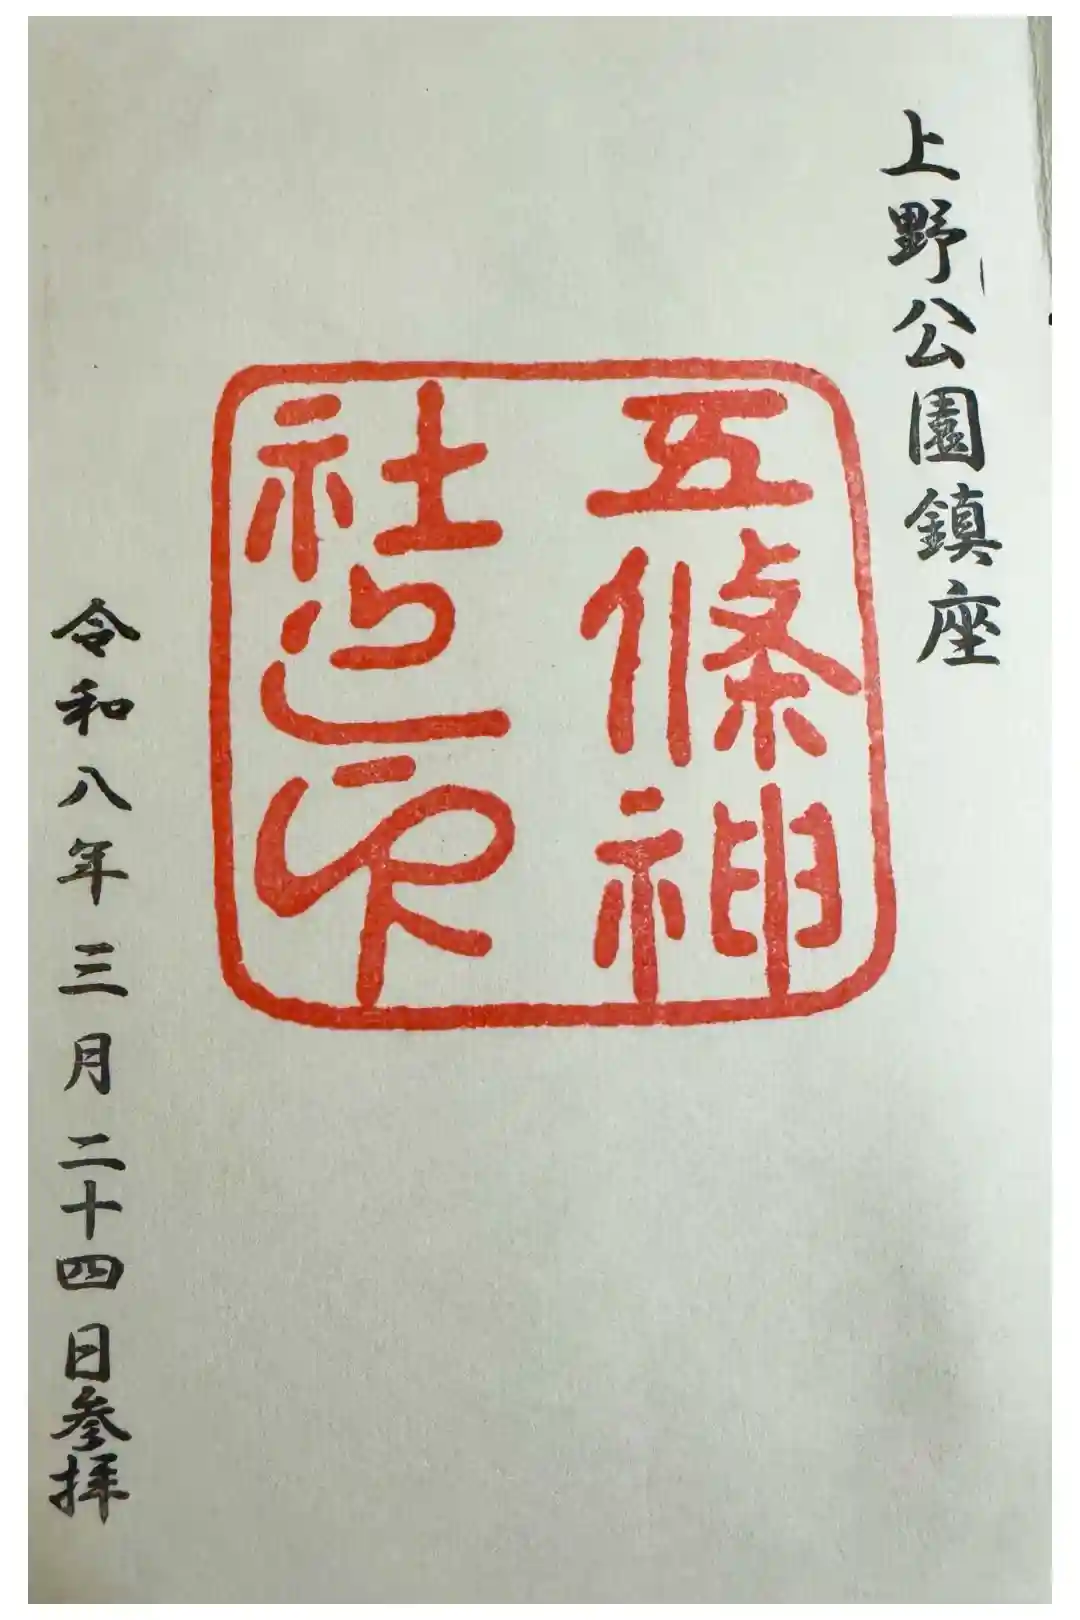 上野公園鎮座
五條神
社之印
令和八年三月二十四日参拝